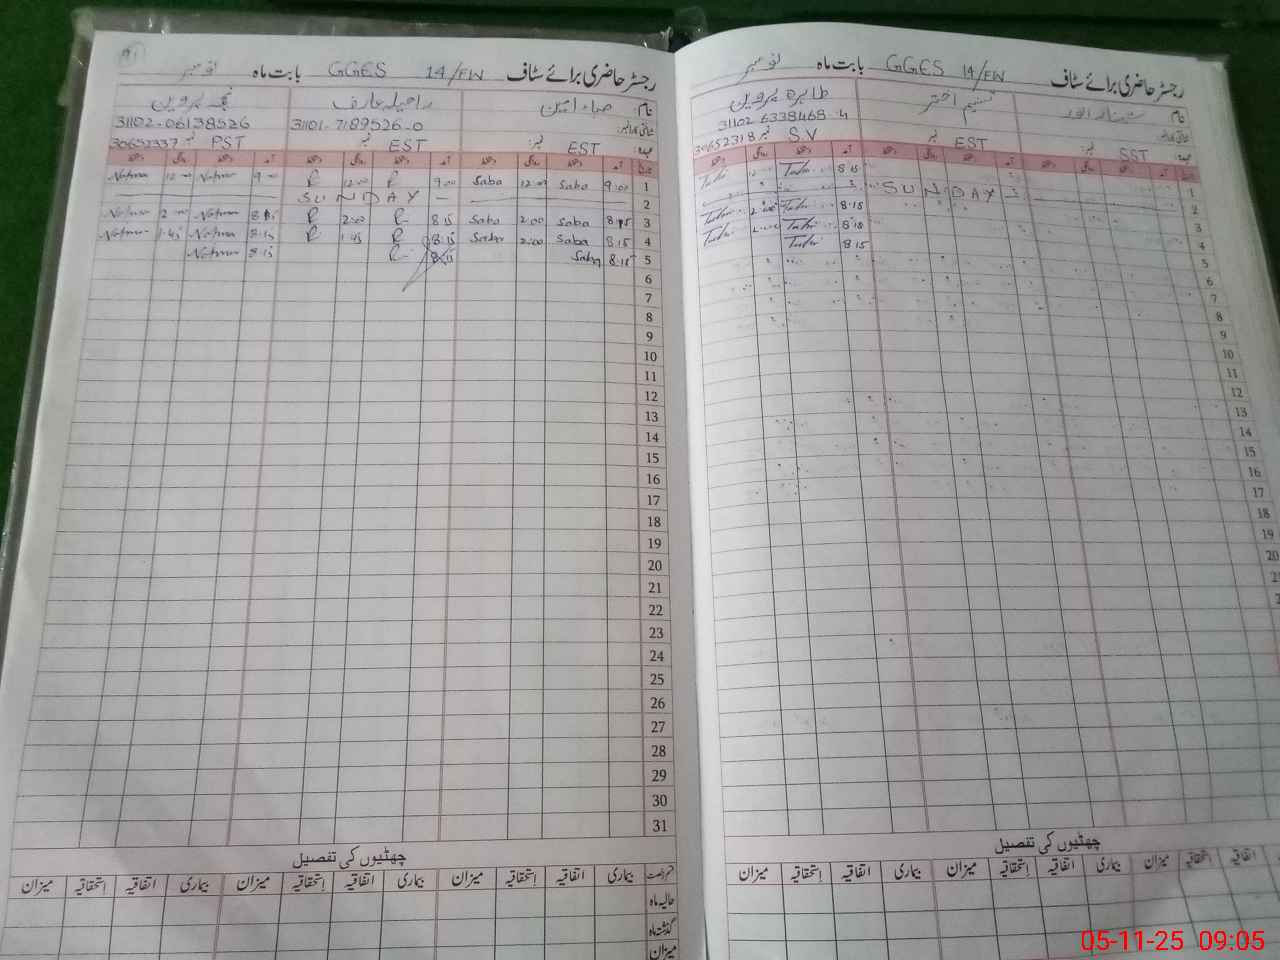 رجسٹر حاضری برائے سٹاف GGES 14/FW بابت ماہ نومبر
نام: صباء امین راحیلہ عارف نجمہ پروین
31101-7189526-0 31102-06138526
عہدہ: EST نمبر: EST نمبر: PST نمبر 30652337
تاریخ آمد دستخط روانگی دستخط آمد دستخط روانگی دستخط آمد دستخط روانگی دستخط
1 9:00 Saba 12:00 Saba 9:00 R 12:00 R 9:00 12:00
2 SUNDAY
3 8:15 Saba 2:00 Saba 8:15 R 2:00 R 8:15 2:00
4 8:15 Saba 2:00 Saba 8:15 R 1:45 R 8:15 1:45
5 8:15 Saba 8:15 R 8:15
6
7
8
9
10
11
12
13
14
15
16
17
18
19
20
21
22
23
24
25
26
27
28
29
30
31
چھٹیوں کی تفصیل
قسم رخصت بیماری اتفاقیہ استحقاقیہ میزان بیماری اتفاقیہ استحقاقیہ میزان بیماری اتفاقیہ استحقاقیہ میزان
حالیہ ماہ
گذشتہ ماہ
میزان
رجسٹر حاضری برائے سٹاف GGES 14/FW بابت ماہ نومبر
نام: شہناز انور تسنیم اختر طاہرہ پروین
31102 6338468-4
عہدہ: SST نمبر: EST نمبر S.V نمبر 30652318
تاریخ آمد دستخط روانگی دستخط آمد دستخط روانگی دستخط آمد دستخط روانگی دستخط
1 8:15
2 SUNDAY
3 8:15 2:00
4 8:15
5 8:15
6
7
8
9
10
11
12
13
14
15
16
17
18
19
20
چھٹیوں کی تفصیل
اتفاقیہ استحقاقیہ میزان بیماری اتفاقیہ استحقاقیہ میزان بیماری اتفاقیہ استحقاقیہ میزان
05-11-25 09:05